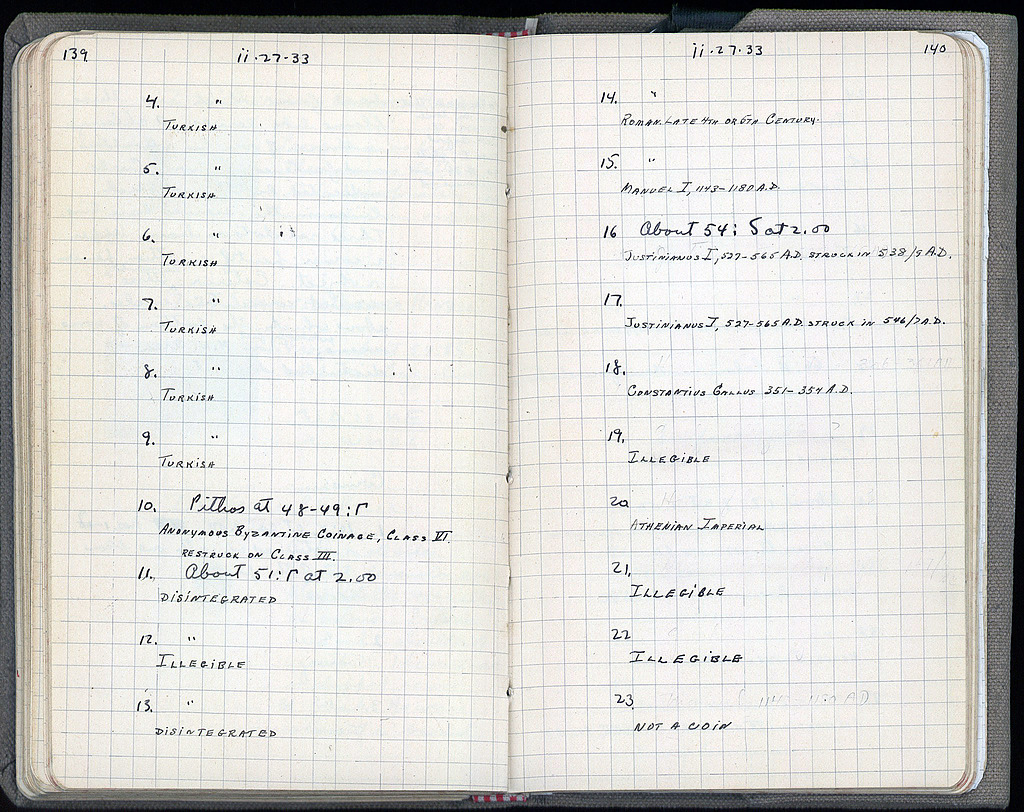 139 ii·27·33
4. "
TURKISH
5. "
TURKISH
6. "
TURKISH
7. "
TURKISH
8. "
TURKISH
9. "
TURKISH
10. Pithos at 48-49:Γ
ANONYMOUS BYZANTINE COINAGE, CLASS VI.
RESTRUCK ON CLASS III.
11. About 51:Γ at 2.00
DISINTEGRATED
12. "
ILLEGIBLE
13. "
DISINTEGRATED
ii·27·33 140
14. "
ROMAN. LATE 4TH OR 5TH CENTURY.
15. "
MANUEL I, 1143-1180 A.D.
16 About 54: at 2.00
JUSTINIANUS I, 527-565 A.D. STRUCK IN 538/9 A.D.
17.
JUSTINIANUS I, 527-565 A.D. STRUCK IN 546/7 A.D.
18.
CONSTANTIUS GALLUS 351-354 A.D.
19.
ILLEGIBLE
20
ATHENIAN IMPERIAL
21.
ILLEGIBLE
22
ILLEGIBLE
23
NOT A COIN